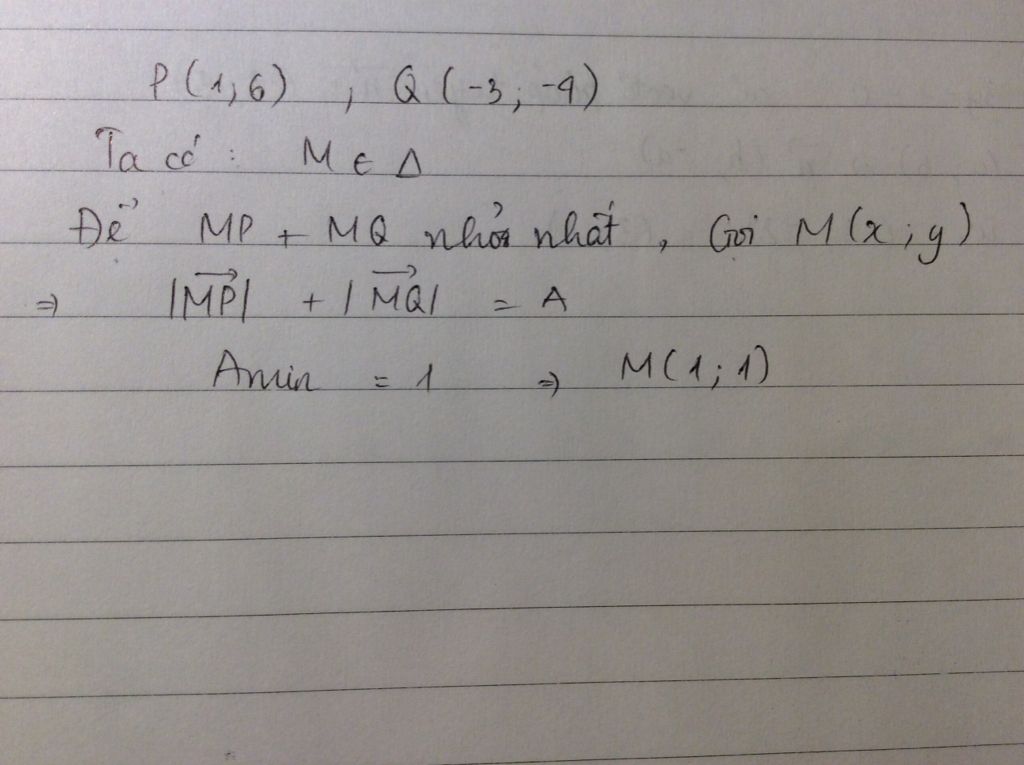 P(1;6) , Q(-3;-4)
Ta có : M ∈ Δ
Để MP + MQ nhỏ nhất , Gọi M(x;y)
⇒ |MP⃗| + |MQ⃗| = A
Amin = 1 ⇒ M(1;1)